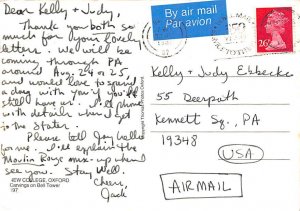 Dear Kelly + Judy,
Thank you both so
much for your lovely
letters. We will be
coming through PA
around Aug. 24 or 25,
and would love to spend
a day with you if you'll
still have us. I'll phone
with details when I get
to the States.
Please tell Joy hello
for me. I'll explain the
Moulin Rouge mix-up when I
see you. Stay Well.
Cheers,
Jack
NEW COLLEGE, OXFORD
Carvings on Bell Tower
'97
By air mail
Par avion
26
Kelly + Judy Ebbecke
55 Deerpath
Kennett Sq., PA
19348
USA
AIRMAIL